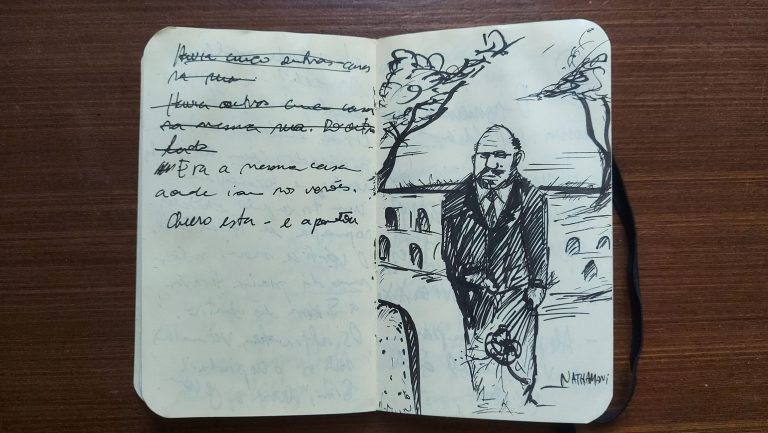 Havia cinco outras casas
na rua.
Havia outras cinco casas
na mesma rua. Do outro
lado
Era a mesma casa
aonde iam nos verões.
Quero esta - e apontou
NATHAMONI